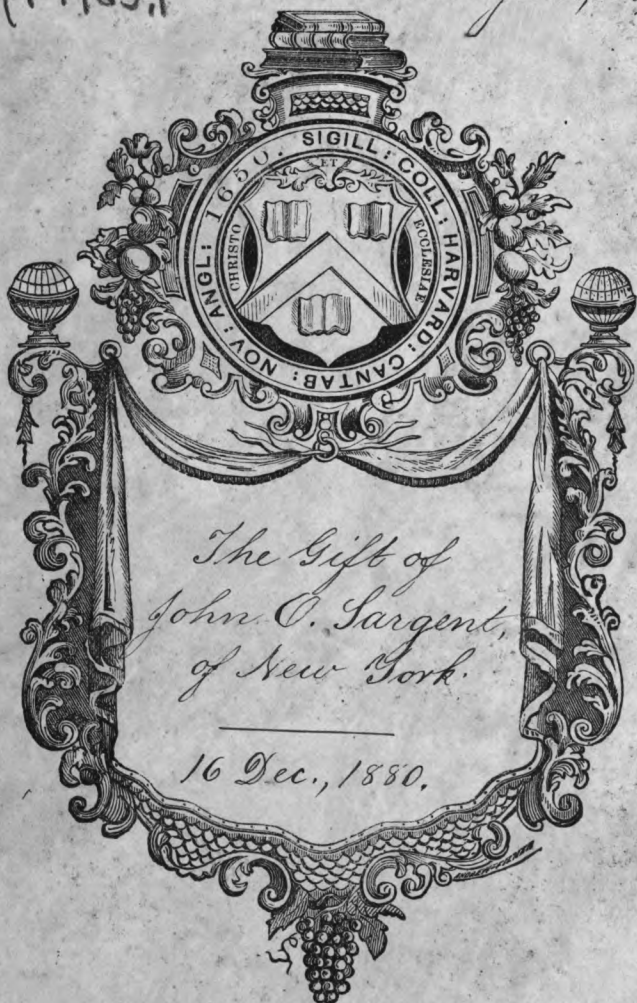 SIGILL: COLL: HARVARD: CANTAB: NOV: ANGL: 1650.
ET
CHRISTO
ECCLESIAE
The Gift of
John O. Sargent,
of New York.
16 Dec., 1880.